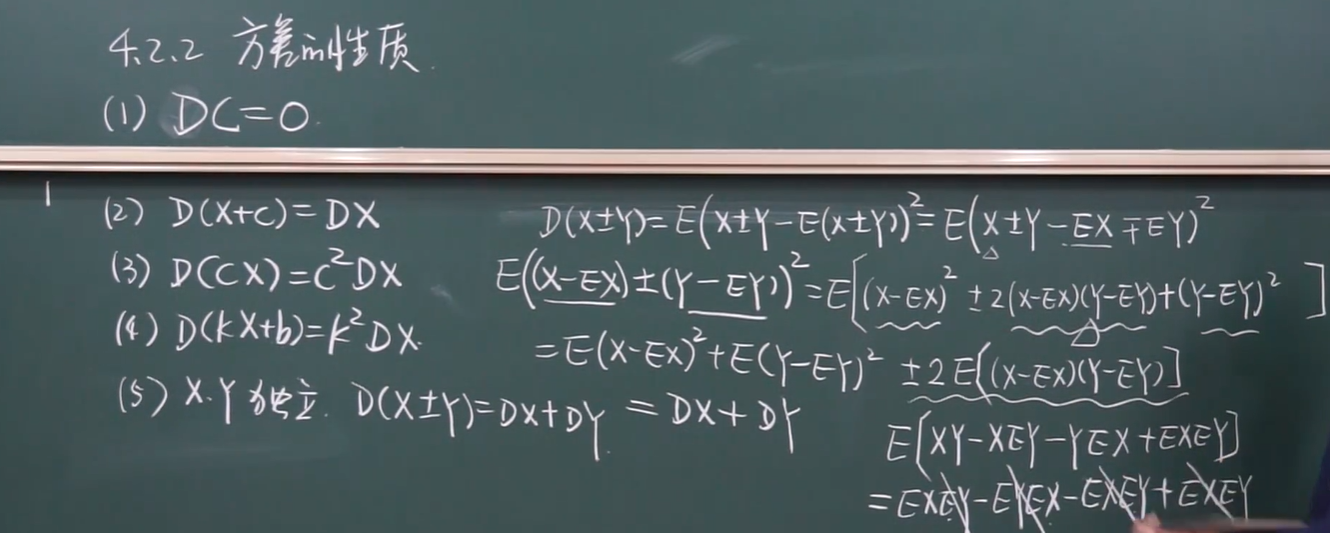 4.2.2 方差的性质.
(1) DC=0.
(2) D(X+C)=DX
(3) D(CX)=C²DX
(4) D(kX+b)=k²DX.
(5) X.Y独立. D(X±Y)=DX+DY.
D(X±Y)=E(X±Y-E(X±Y))²=E(X±Y-EX∓EY)²
E((X-EX)±(Y-EY))²=E[(X-EX)²±2(X-EX)(Y-EY)+(Y-EY)²]
=E(X-EX)²+E(Y-EY)²±2E[(X-EX)(Y-EY)]
=DX+DY
E[XY-XEY-YEX+EXEY]
=EXEY-EYEX-EXEY+EXEY